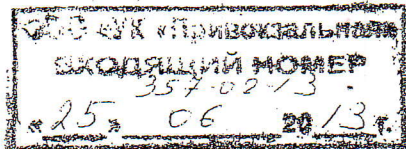 ООО «УК «Привокзальная»
ВХОДЯЩИЙ НОМЕР
357-02-13
«25» 06 2013 г.